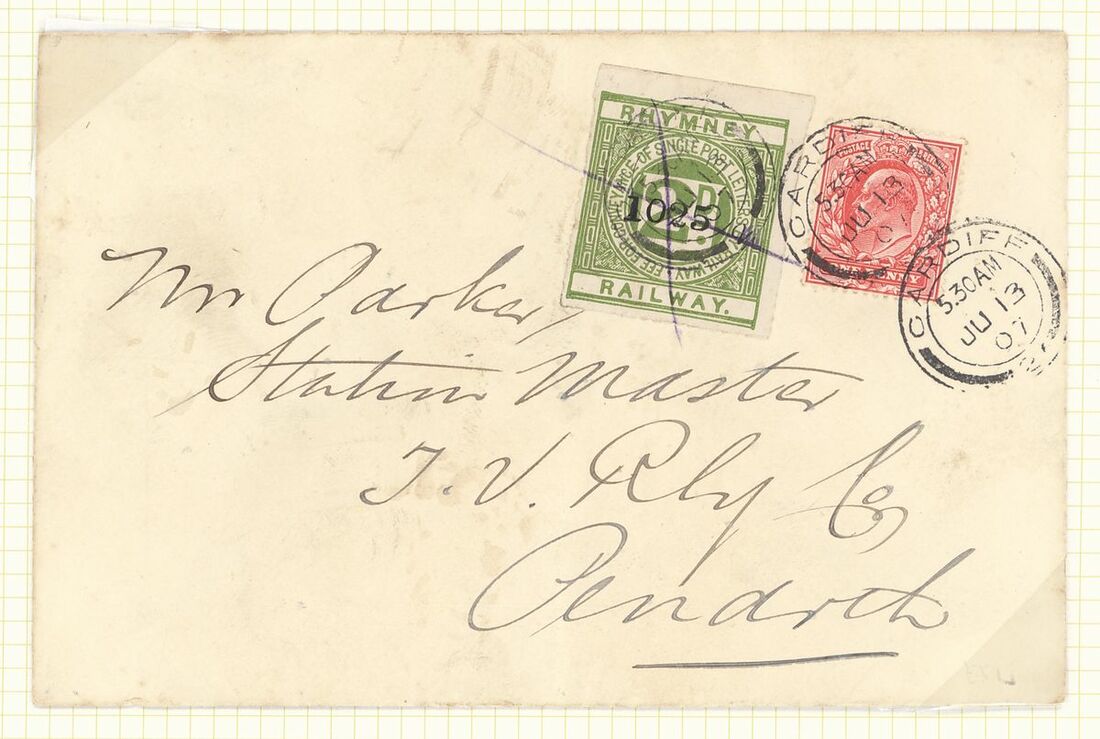 RHYMNEY
FEE FOR CONVEYANCE OF SINGLE POST LETTERS BY RAILWAY
2D
1025
RAILWAY.
POSTAGE
ONE PENNY
CARDIFF
5.30AM
JU 13
07
CARDIFF
5.30AM
JU 13
07
Mr Parker,
Station Master
T. V. Rly Co
Penarth